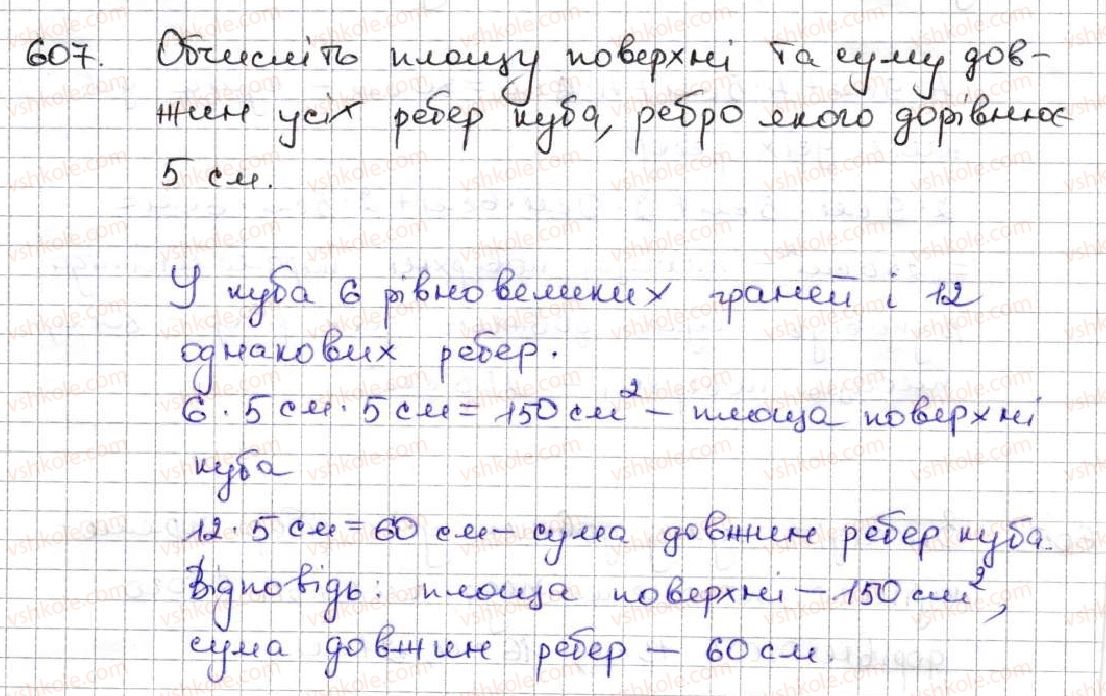 607. Обчисліть площу поверхні та суму дов-
жин усіх ребер куба, ребро якого дорівнює
5 см.
У куба 6 рівновеликих граней і 12
однакових ребер.
6 · 5 см · 5 см = 150 см² – площа поверхні
куба
12 · 5 см = 60 см – сума довжин ребер куба.
Відповідь: площа поверхні – 150 см²,
сума довжин ребер – 60 см.